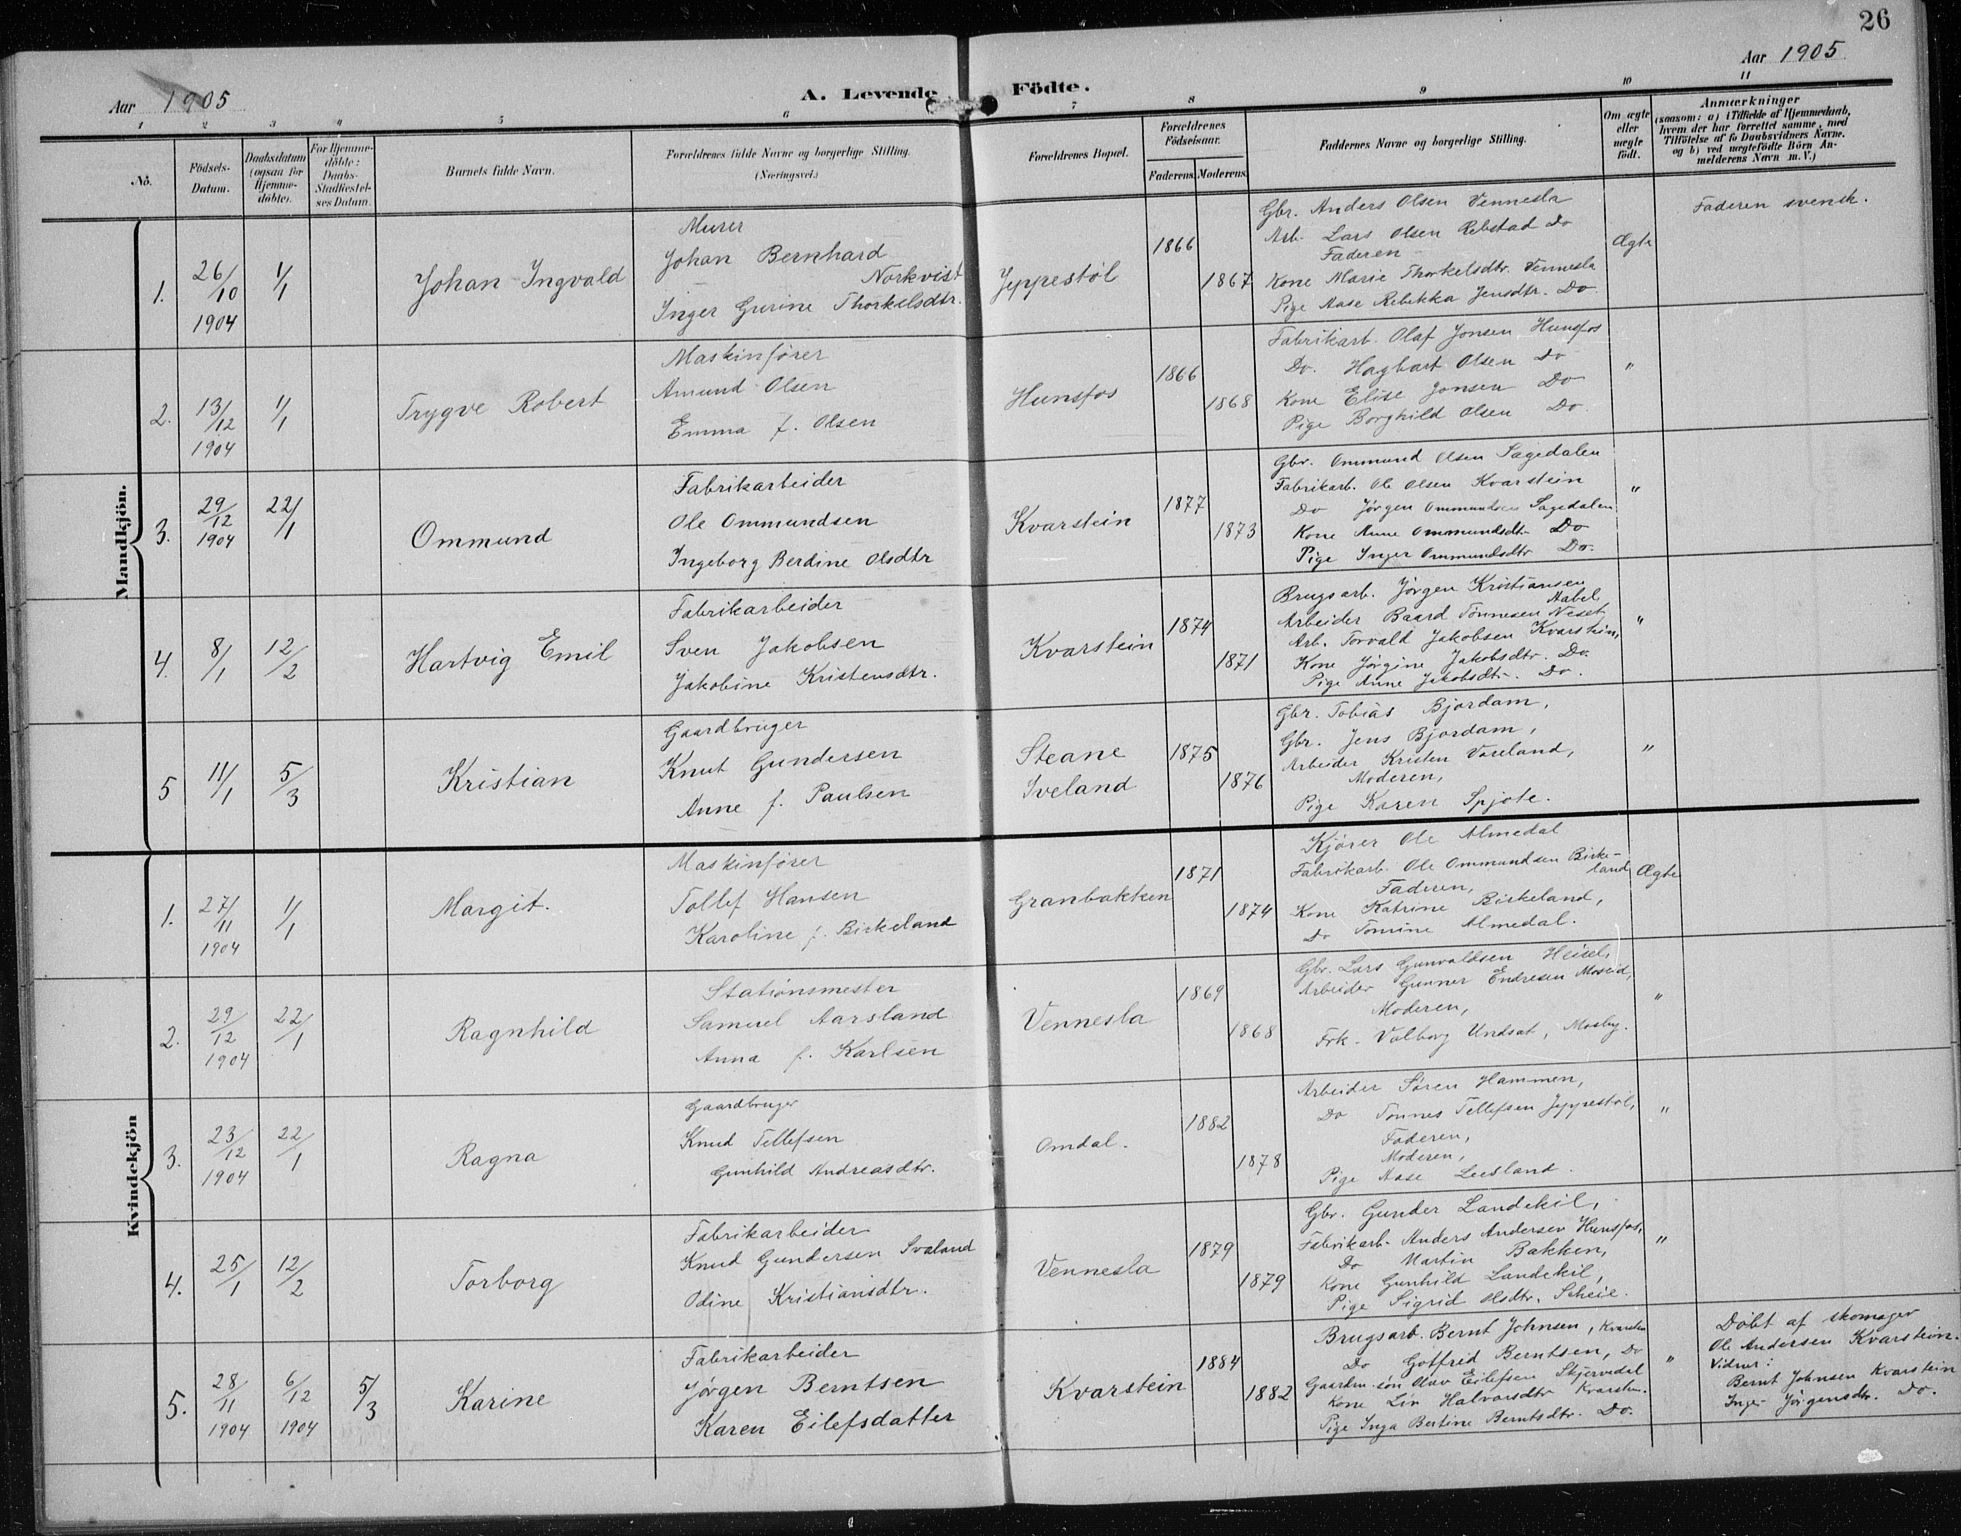 26
Aar 1905
A. Levende Födte.
Aar 1905
1 2 3 4 5 6 7 8 9 10 11
No.
Födsels-Datum.
Daabsdatum (ogsaa for Hjemme-döbte).
For Hjemme-döbte: Daabs-Stadfæstel-ses Datum.
Barnets fulde Navn.
Forældrenes fulde Navne og borgerlige Stilling.
(Næringsvei.)
Forældrenes Bopæl.
Forældrenes Födselsaar.
Faderens. Moderens.
Faddernes Navne og borgerlige Stilling.
Om ægte eller uægte födt.
Anmærkninger
(saasom: a) i Tilfælde af Hjemmedaab,
hvem der har forrettet samme, med
Tilföielse af to Daabsvidners Navne,
og b) ved uægtefödte Börn An-
melderens Navn m. V.)
Mandkjön.
1. 26/10 1904 1/1 Johan Ingvald
Murer
Johan Bernhard
Norkvist
Inger Gurine Thorkelsdtr.
Jeppestøl 1866 1867
Gbr. Anders Olsen Vennesla
Arb. Lars Olsen Rebstad Do
Faderen
Kone Marie Thorkelsdtr. Vennesla
Pige Aase Rebekka Jensdtr. Do.
Ægte
Faderen svensk.
2. 13/12 1904 1/1 Trygve Robert
Maskinfører
Amund Olsen
Emma f. Olsen
Hunsfos 1866 1868
Fabrikarb. Olaf Jonsen Hunsfos
Do. Hagbart Olsen Do
Kone Elise Jonsen Do
Pige Borghild Olsen Do.
"
3. 29/12 1904 22/1 Ommund
Fabrikarbeider
Ole Ommundsen
Ingeborg Berdine Olsdtr
Kvarstein 1877 1873
Gbr. Ommund Olsen Sagedalen
Fabrikarb. Ole Olsen Kvarstein
Do Jørgen Ommundsen Sagedalen
Kone Anne Ommundsdtr Do
Pige Inger Ommundsdtr Do.
"
4. 8/1 12/2 Hartvig Emil
Fabrikarbeider
Sven Jakobsen
Jakobine Kristensdtr.
Kvarstein 1874 1871
Brugsarb. Jørgen Kristiansen
Aabel,
Arbeider Baard Tønnesen Neset
Arb. Torvald Jakobsen Kvarstein,
Kone Jørgine Jakobsdtr. Do.
Pige Anne Jakobsdtr. Do.
"
5 11/1 5/3 Kristian
Gaardbruger
Knut Gundersen
Anne f. Paulsen
Steane
Iveland 1875 1876
Gbr. Tobias Bjordam,
Gbr. Jens Bjordam,
Arbeider Kristen
Moderen,
Pige Karen Spjote.
"
Kvindekjön
1. 27/11 1904 1/1 Margit.
Maskinfører
Tollef Hansen
Karoline f. Birkeland
Granbakken 1871 1874
Kjører Ole Almedal
Fabrikarb. Ole Ommundsen Birke-
land
Faderen,
Kone Katrine Birkeland,
Do Tomine Almedal.
Ægte
2. 29/12 1904 22/1 Ragnhild
Stationsmester
Samuel Aarsland
Anna f. Karlsen
Vennesla 1869 1868
Gbr. Lars Gunvaldsen Heisel,
Arbeider Gunner Endresen Moseid,
Moderen,
Frk. Valborg Undsat, Mosby.
"
3. 23/12 1904 22/1 Ragna
Gaardbruger
Knud Tellefsen
Gunhild Andreasdtr.
Omdal. 1882 1878
Arbeider Søren Hammen,
Do Tønnes Tellefsen Jeppestøl,
Faderen,
Moderen,
Pige Aase Leesland.
"
4. 25/1 12/2 Torborg
Fabrikarbeider
Knud Gundersen Svaland
Odine Kristiansdtr.
Vennesla 1879 1879
Gbr. Gunder Landekil,
Fabrikarb. Anders Andersen Hunsfos,
Do Martin Bakken,
Kone Gunhild Landekil,
Pige Sigrid Olsdtr. Scheie.
"
5. 28/11 1904 6/12 1904 5/3 Karine
Fabrikarbeider
Jørgen Berntsen
Karen Eilefsdatter
Kvarstein 1884 1882
Brugsarb. Bernt Johnsen, Kvarstein
Do Gotfrid Berntsen, Do
Gaardm. søn Olav Eilefsen Skjervedal
Kone Liv Halvorsdtr Kvarstein.
Pige Inga Bertine Berntsdtr. Do.
"
Döbt af skomager
Ole Andersen Kvarstein.
Vidner:
Bernt Johnsen Kvarstein
Inger Jørgensdtr. Do.